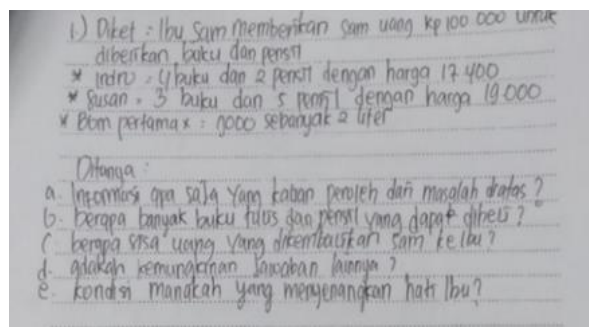 1.) Diket : Ibu Sam memberikan Sam uang Rp 100 000 untuk
diberikan buku dan pensil
* Indro : 4 buku dan 2 pensil dengan harga 17.400
* Susan : 3 buku dan 5 pensil dengan harga 19.000
* Bbm pertamax : 9000 sebanyak 2 liter
Ditanya :
a. Informasi apa saja yang kalian peroleh dari masalah diatas ?
b. berapa banyak buku tulis dan pensil yang dapat dibeli ?
c. berapa sisa uang yang dikembalikan Sam ke Ibu ?
d. adakah kemungkinan jawaban lainnya ?
e. kondisi manakah yang menyenangkan hati Ibu ?